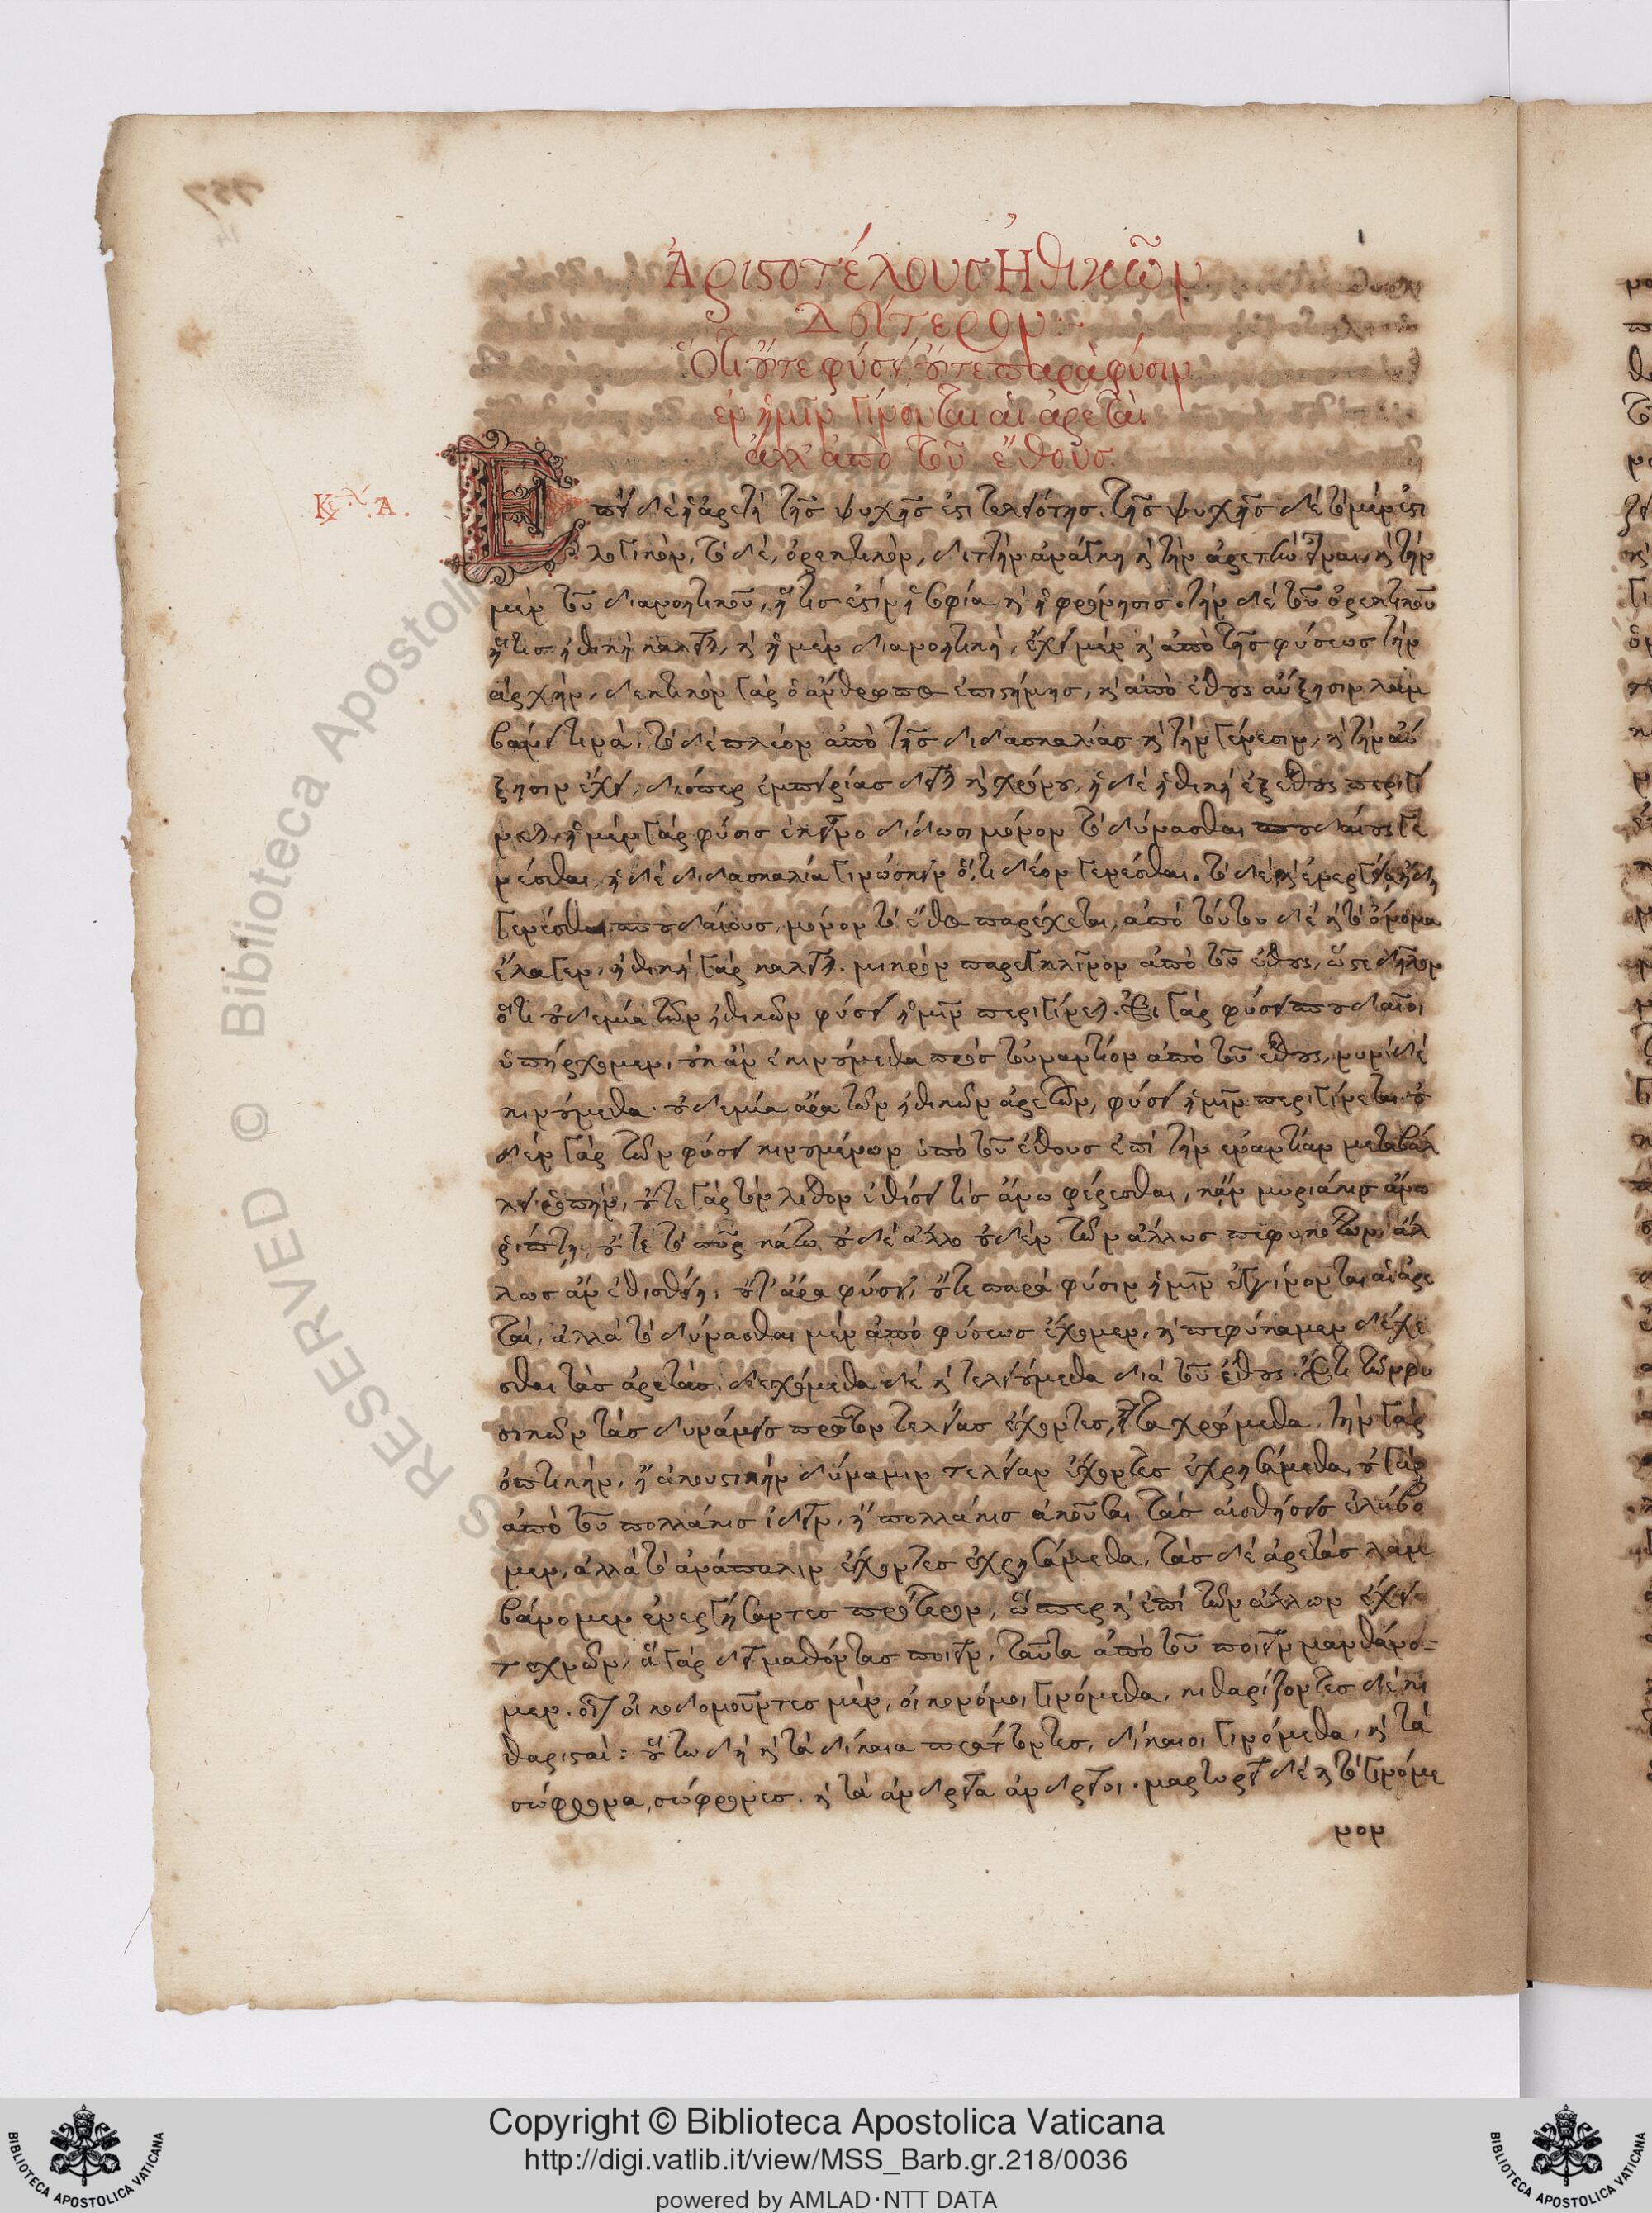 Ἀριστοτέλους Ἠθικῶν
Δεύτερον
Ὅτι οὔτε φύσει, οὔτε παρὰ φύσιν
ἐν ἡμῖν γίνονται αἱ ἀρεταὶ
ἀλλ' ἀπὸ τοῦ ἔθους.
Κεφ. Α.
Ἐπεὶ δὲ ἡ ἀρετὴ τῆς ψυχῆς ἐστι τελειότης. τῆς ψυχῆς δὲ τὸ μέν ἐστι
λογικὸν, τὸ δὲ, ὀρεκτικὸν, διττὴν ἀνάγκη καὶ τὴν ἀρετὴν εἶναι, καὶ τὴν
μὲν τοῦ διανοητικοῦ, ἥτις ἐστὶν ἡ σοφία καὶ ἡ φρόνησις. τὴν δὲ τοῦ ὀρεκτικοῦ
ἥτις ἠθικὴ καλεῖται, καὶ ἡ μὲν διανοητικὴ, ἔχει μὲν καὶ ἀπὸ τῆς φύσεως τὴν
ἀρχὴν, δεκτικὸν γὰρ ὁ ἄνθρωπος ἐπιστήμης, καὶ ἀπὸ ἔθους αὔξησιν λαμ
βάνει τινὰ. τὸ δὲ πλέον ἀπὸ τῆς διδασκαλίας καὶ τὴν γένεσιν, καὶ τὴν αὔ
ξησιν ἔχει, διόπερ ἐμπειρίας δεῖται καὶ χρόνου, ἡ δὲ ἠθικὴ ἐξ ἔθους περιγί
νεται, ἡ μὲν γὰρ φύσις ἐκεῖνο δίδωσι μόνον τὸ δύνασθαι σπουδαίους γε
νέσθαι, ἡ δὲ διδασκαλία γινώσκειν ὅ,τι δέον γενέσθαι. τὸ δὲ καὶ ἐνεργείᾳ ἤδη
γενέσθαι σπουδαίους, μόνον τὸ ἔθος παρέχεται, ἀπὸ τούτου δὲ καὶ τὸ ὄνομα
ἔλαχεν, ἠθικὴ γὰρ καλεῖται. μικρὸν παρεγκλῖνον ἀπὸ τοῦ ἔθους, ὥστε δῆλον
ὅτι οὐδεμία τῶν ἠθικῶν φύσει ἡμῖν περιγίνεται. Εἰ γὰρ φύσει σπουδαῖοι
ὑπήρχομεν, οὐκ ἂν ἐκινούμεθα πρὸς τοὐναντίον ἀπὸ τοῦ ἔθους, νυνὶ δὲ
κινούμεθα. οὐδεμία ἄρα τῶν ἠθικῶν ἀρετῶν, φύσει ἡμῖν περιγίνεται. οὐ
δὲν γὰρ τῶν φύσει κινουμένων ὑπὸ τοῦ ἔθους ἐπὶ τὴν ἐναντίαν μεταβάλ
λει ῥοπὴν, οὔτε γὰρ τὸν λίθον ἐθίσει τὶς ἄνω φέρεσθαι, κἂν μυριάκις ἄνω
ῥίπτῃ, οὔτε τὸ πῦρ κάτω, οὐδὲ ἄλλο οὐδὲν τῶν ἄλλως πεφυκότων, ἄλ
λως ἂν ἐθισθείη. οὔτ' ἄρα φύσει, οὔτε παρὰ φύσιν ἡμῖν ἐγγίνονται αἱ ἀρε
ταὶ, ἀλλὰ τὸ δύνασθαι μὲν ἀπὸ φύσεως ἔχομεν, καὶ πεφύκαμεν δέχε
σθαι τὰς ἀρετὰς. δεχόμεθα δὲ καὶ τελειούμεθα διὰ τοῦ ἔθους. Ἔτι τῶν φυ
σικῶν τὰς δυνάμεις πρῶτον τελείας ἔχοντες, εἶτα χρώμεθα. τὴν γὰρ
ὀπτικὴν, ἢ ἀκουστικὴν δύναμιν τελείαν ἔχοντες ἐχρησάμεθα, οὐ γὰρ
ἀπὸ τοῦ πολλάκις ἰδεῖν, ἢ πολλάκις ἀκοῦσαι τὰς αἰσθήσεις ἐλάβο
μεν, ἀλλὰ τὸ ἀνάπαλιν ἔχοντες ἐχρησάμεθα, τὰς δὲ ἀρετὰς λαμ
βάνομεν ἐνεργήσαντες πρότερον, ὥσπερ καὶ ἐπὶ τῶν ἄλλων ἔχει
τεχνῶν, ἃ γὰρ δεῖ μαθόντας ποιεῖν, ταῦτα ἀπὸ τοῦ ποιεῖν μανθάνο-
μεν. οἷον οἰκοδομοῦντες μὲν, οἰκονόμοι γινόμεθα, κιθαρίζοντες δὲ κι
θαρισταὶ: οὕτω δὴ καὶ τὰ δίκαια πράττοντες, δίκαιοι γινόμεθα, καὶ τὰ
σώφρονα, σώφρονες. καὶ τὰ ἀνδρεῖα ἀνδρεῖοι. μαρτυρεῖ δὲ καὶ τὸ γινόμε
νον
Copyright © Biblioteca Apostolica Vaticana
http://digi.vatlib.it/view/MSS_Barb.gr.218/0036
powered by AMLAD·NTT DATA